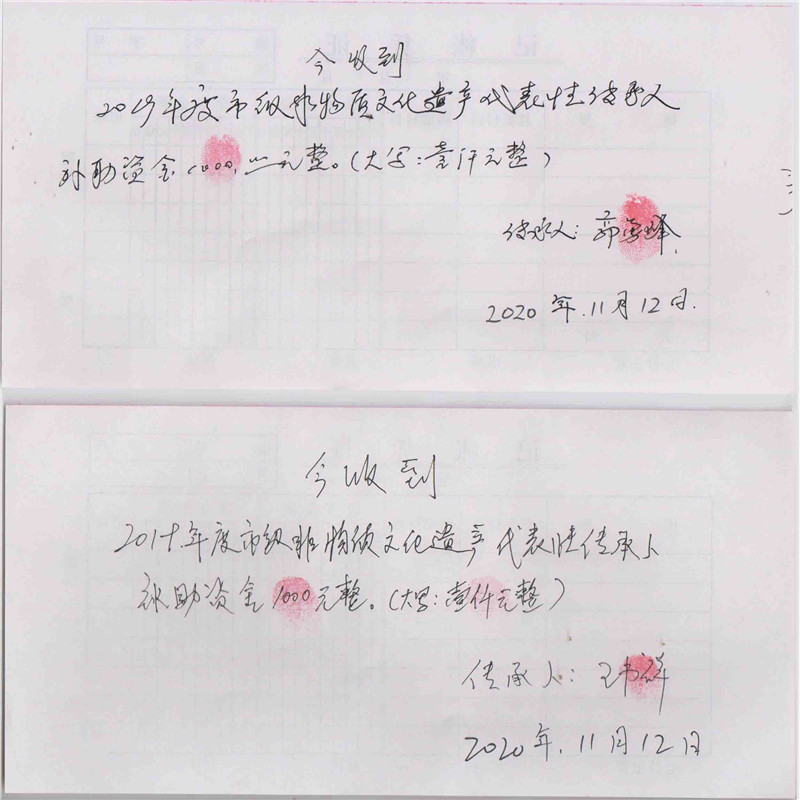 今收到
2019年度市级非物质文化遗产代表性传承人
补助资金1000.00元整。(大写:壹仟元整)
传承人:郭雪峰
2020年.11月12日.
今收到
2019年度市级非物质文化遗产代表性传承人
补助资金1000元整。(大写:壹仟元整)
传承人:王书祥
2020年.11月12日